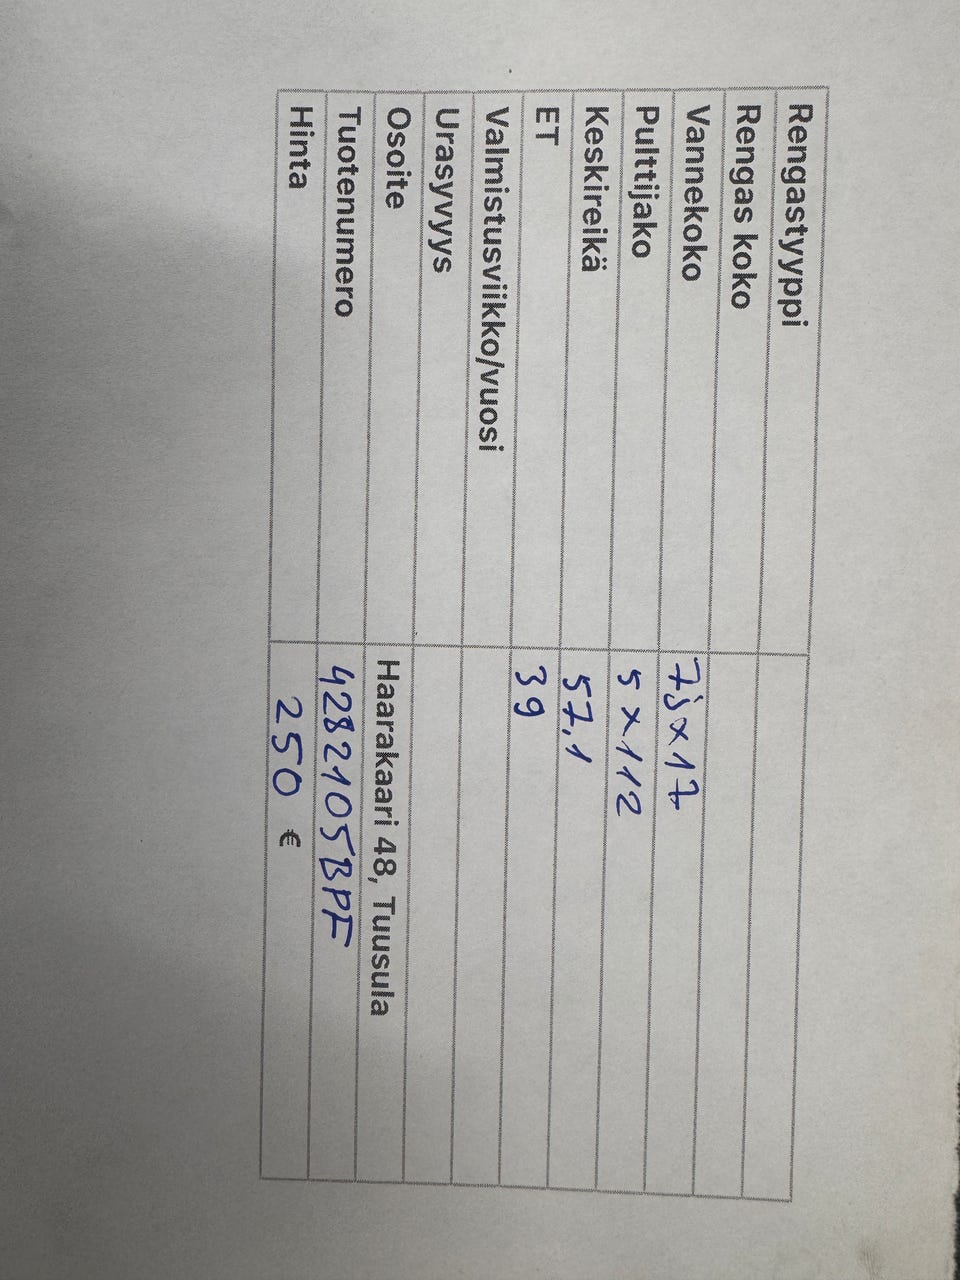 Rengastyyppi
Rengas koko
Vannekoko 7jx17
Pulttijako 5x112
Keskireikä 57,1
ET 39
Valmistusviikko/vuosi
Urasyvyys
Osoite Haarakaari 48, Tuusula
Tuotenumero 4282105BPF
Hinta 250 €